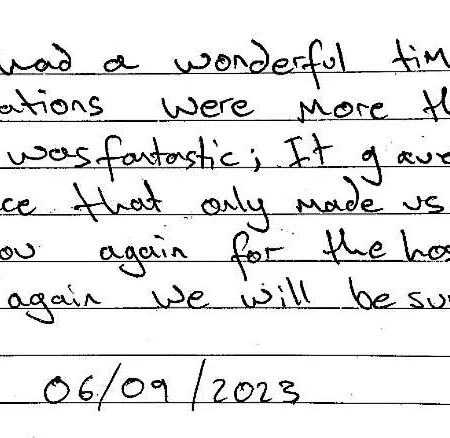 had a wonderful tim
ations were more th
was fantastic; It gave
ce that only made us
ou again for the hos
again we will be su
06/09/2023